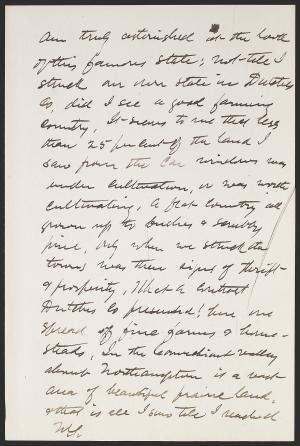 am truly astonished at the look
of this famous State; not till I
struck our own State in Dutchess
Co, did I see a good farming
country, It seems to me that less
than 25 per cent of the land I
saw from the car windows was
under cultivation, or was worth
cultivating, A flat country all
grown up to bushes & scrubby
pine, Only when we struck the
towns was there signs of thrift
& prosperity, What a contrast
Dutchess Co presented! here one
spread of fine farms & home-
steads, In the Connecticut valley
about Northampton is a vast
area of beautiful prairie land,
& that is all I saw till I reached
N.Y.